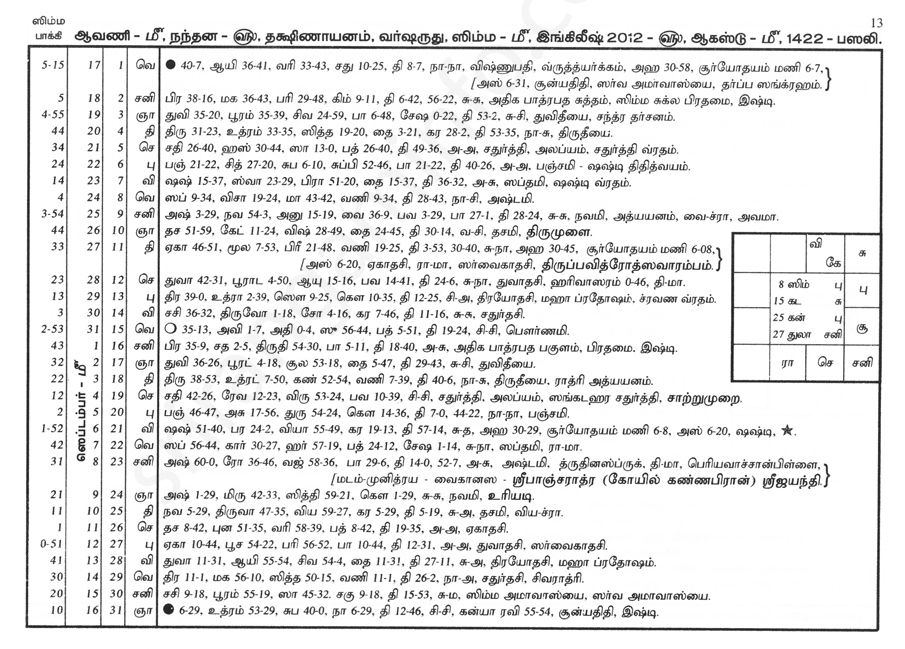 ஸிம்ம 13
பாக்கி ஆவணி - மீ, நந்தன - வரு, தக்ஷிணாயனம், வர்ஷருது, ஸிம்ம - மீ, இங்கிலீஷ் 2012 - வரு, ஆகஸ்டு - மீ, 1422 - பஸலி.
5-15 17 1 வெ ● 40-7, ஆயி 36-41, வரி 33-43, சது 10-25, தி 8-7, நா-நா, விஷ்ணுபதி, வ்ருத்த்யர்க்கம், அஹ 30-58, சூர்யோதயம் மணி 6-7,
[அஸ் 6-31, சூன்யதிதி, ஸர்வ அமாவாஸ்யை, தர்ப்ப ஸங்க்ரஹம்.}
5 18 2 சனி பிர 38-16, மக 36-43, பரி 29-48, கிம் 9-11, தி 6-42, 56-22, சு-சு, அதிக பாத்ரபத சுத்தம், ஸிம்ம சுக்ல பிரதமை, இஷ்டி.
4-55 19 3 ஞா துவி 35-20, பூரம் 35-39, சிவ 24-59, பா 6-48, சேஷ 0-22, தி 53-2, சு-சி, துவிதீயை, சந்த்ர தர்சனம்.
44 20 4 தி திரு 31-23, உத்ரம் 33-35, ஸித்த 19-20, தை 3-21, கர 28-2, தி 53-35, நா-சு, திருதீயை.
34 21 5 செ சதி 26-40, ஹஸ் 30-44, ஸா 13-0, பத் 26-40, தி 49-36, அ-அ, சதுர்த்தி, அலப்யம், சதுர்த்தி வ்ரதம்.
24 22 6 பு பஞ் 21-22, சித் 27-20, சுப 6-10, சுப்பி 52-46, பா 21-22, தி 40-26, அ-அ, பஞ்சமி - ஷஷ்டி திதித்வயம்.
14 23 7 வி ஷஷ் 15-37, ஸ்வா 23-29, பிரா 51-20, தை 15-37, தி 36-32, அ-சு, ஸப்தமி, ஷஷ்டி வ்ரதம்.
4 24 8 வெ ஸப் 9-34, விசா 19-24, மா 43-42, வணி 9-34, தி 28-43, நா-சி, அஷ்டமி.
3-54 25 9 சனி அஷ் 3-29, நவ 54-3, அனு 15-19, வை 36-9, பவ 3-29, பா 27-1, தி 28-24, சு-சு, நவமி, அத்யயனம், வை-ச்ரா, அவமா.
44 26 10 ஞா தச 51-59, கேட் 11-24, விஷ் 28-49, தை 24-45, தி 30-14, வ-சி, தசமி, திருமுளை.
33 27 11 தி ஏகா 46-51, மூல 7-53, பிரீ 21-48, வணி 19-25, தி 3-53, 30-40, சு-நா, அஹ 30-45, சூர்யோதயம் மணி 6-08,
[அஸ் 6-20, ஏகாதசி, ரா-மா, ஸர்வைகாதசி, திருப்பவித்ரோத்ஸவாரம்பம்.}
23 28 12 செ துவா 42-31, பூராட 4-50, ஆயு 15-16, பவ 14-41, தி 24-6, சு-நா, துவாதசி, ஹரிவாஸரம் 0-46, தி-மா.
13 29 13 பு திர 39-0, உத்ரா 2-39, ஸௌ 9-25, கௌ 10-35, தி 12-25, சி-அ, திரயோதசி, மஹா ப்ரதோஷம், ச்ரவண வ்ரதம்.
3 30 14 வி சசி 36-32, திருவோ 1-18, சோ 4-16, கர 7-46, தி 11-16, சு-சு, சதுர்தசி.
2-53 31 15 வெ ○ 35-13, அவி 1-7, அதி 0-4, ஸு 56-44, பத் 5-51, தி 19-24, சி-சி, பௌர்ணமி.
43 1 16 சனி பிர 35-9, சத 2-5, திருதி 54-30, பா 5-11, தி 18-40, அ-சு, அதிக பாத்ரபத பகுளம், பிரதமை, இஷ்டி.
32 2 17 ஞா துவி 36-26, பூரட் 4-18, சூல 53-18, தை 5-47, தி 29-43, சு-சி, துவிதீயை.
22 3 18 தி திரு 38-53, உத்ரட் 7-50, கண் 52-54, வணி 7-39, தி 40-6, நா-சு, திருதீயை, ராத்ரி அத்யயனம்.
12 4 19 செ சதி 42-26, ரேவ 12-23, விரு 53-24, பவ 10-39, சி-சி, சதுர்த்தி, அலப்யம், ஸங்கடஹர சதுர்த்தி, சாற்றுமுறை.
2 5 20 பு பஞ் 46-47, அசு 17-56, துரு 54-24, கௌ 14-36, தி 7-0, 44-22, நா-நா, பஞ்சமி.
1-52 6 21 வி ஷஷ் 51-40, பர 24-2, வியா 55-49, கர 19-13, தி 57-14, சு-த, அஹ 30-29, சூர்யோதயம் மணி 6-8, அஸ் 6-20, ஷஷ்டி, ★.
42 7 22 வெ ஸப் 56-44, கார் 30-27, ஹர் 57-19, பத் 24-12, சேஷ 1-14, சு-நா, ஸப்தமி, ரா-மா.
31 8 23 சனி அஷ் 60-0, ரோ 36-46, வஜ் 58-36, பா 29-6, தி 14-0, 52-7, அ-சு, அஷ்டமி, த்ருதினஸ்ப்ருக், தி-மா, பெரியவாச்சான்பிள்ளை,
[மடம்-முனித்ரய - வைகானஸ - ஸ்ரீபாஞ்சராத்ர (கோயில் கண்ணபிரான்) ஸ்ரீஜயந்தி.}
21 9 24 ஞா அஷ் 1-29, மிரு 42-33, ஸித்தி 59-21, கௌ 1-29, சு-சு, நவமி, உரியடி.
11 10 25 தி நவ 5-29, திருவா 47-35, விய 59-27, கர 5-29, தி 5-19, சு-அ, தசமி, விய-ச்ரா.
1 11 26 செ தச 8-42, புன 51-35, வரி 58-39, பத் 8-42, தி 19-35, அ-அ, ஏகாதசி.
0-51 12 27 பு ஏகா 10-44, பூச 54-22, பரி 56-52, பா 10-44, தி 12-31, அ-அ, துவாதசி, ஸர்வைகாதசி.
41 13 28 வி துவா 11-31, ஆயி 55-54, சிவ 54-4, தை 11-31, தி 27-11, சு-அ, திரயோதசி, மஹா ப்ரதோஷம்.
30 14 29 வெ திர 11-1, மக 56-10, ஸித்த 50-15, வணி 11-1, தி 26-2, நா-அ, சதுர்தசி, சிவராத்ரி.
20 15 30 சனி சசி 9-18, பூரம் 55-19, ஸா 45-32, சகு 9-18, தி 15-53, சு-ம, ஸிம்ம அமாவாஸ்யை, ஸர்வ அமாவாஸ்யை.
10 16 31 ஞா ● 6-29, உத்ரம் 53-29, சுப 40-0, நா 6-29, தி 12-46, சி-சி, கன்யா ரவி 55-54, சூன்யதிதி, இஷ்டி.
ஸெப்டம்பர் - மீ
வி கே சு
8 ஸிம் பு பு
15 கட சு
25 கன் பு
27 துலா சனி சூ
ரா செ சனி